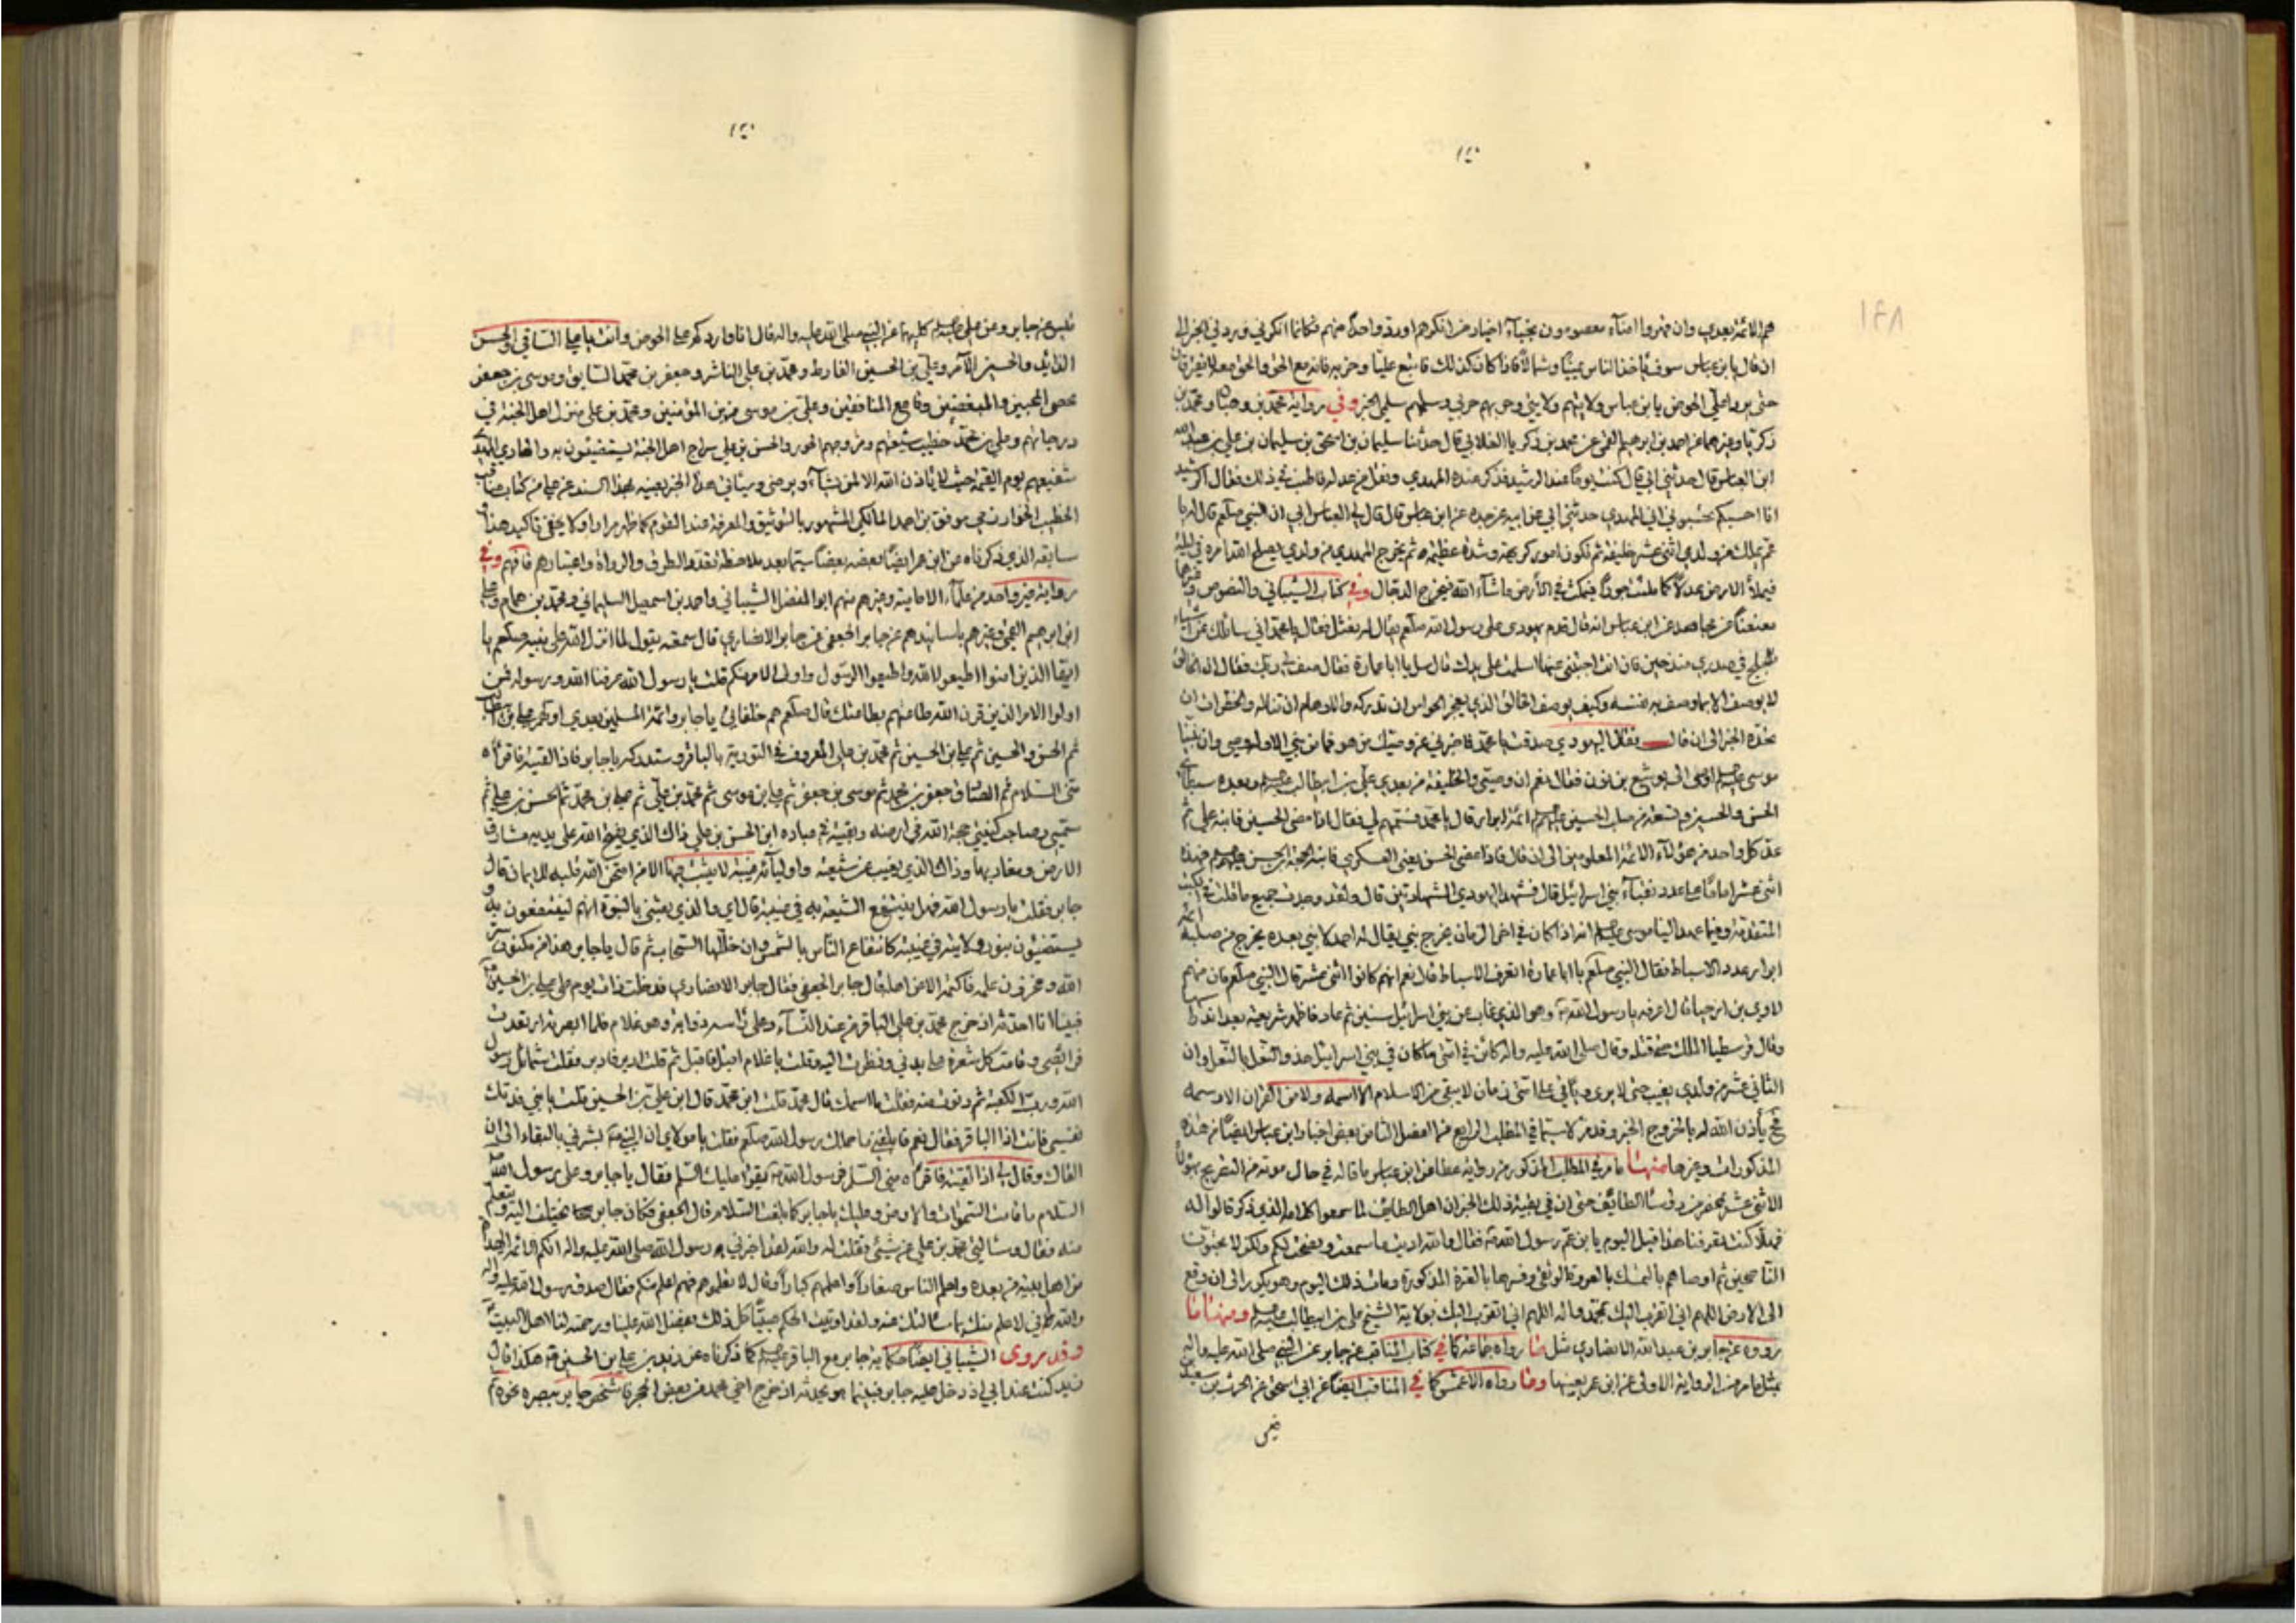 هم الائمة بعدي وان قهروا امناء معصومون نجباء اخيار من انكرهم اورد واحدا منهم فكانما انكرني وردني الخبر الى
ان قال يابن عباس سوف ياخذ الناس يمينا وشمالا فاذا كان كذلك فاتبع عليا وحزبه فانه مع الحق والحق معه لا يفترقان
حتى يردا على الحوض يابن عباس ولايتهم ولايتي وحربهم حربي وسلمهم سلمي الخبر وفي رواية محمد بن وهبان ومحمد بن
زكريا وغيرهما عن احمد بن ابرهيم العمي عن محمد بن زكريا الغلابي قال حدثنا سليمان بن اسحق بن سليمان بن علي بن عبد الله
ابن العباس قال حدثني ابي قال كنت يوما عند الرشيد فذكر عنده المهدي ونقل من عدله فاطنب في ذلك فقال الرشيد
انا احسبكم تحسبونه ابي المهدي حدثني ابي عن ابيه عن جده عن ابن عباس قال قال لي العباس ابي ان النبي صلعم قال له يا
عم يملك من ولدي اثنى عشر خليفة ثم تكون امور كريهة وشدة عظيمة ثم يخرج المهدي من ولدي يصلح الله امره في ليلة
فيملأ الارض عدلا كما ملئت جورا فيمكث في الأرض ما شاء الله ثم يخرج الدجال وفي كتاب الشيباني والنصوص وغيرها
معنعنا عن مجاهد عن ابن عباس انه قال قدم يهودي على رسول الله صلعم يقال له نعثل فقال يا محمد اني سائلك عن اشياء
تلجلج في صدري منذ حين فان انت اجبتني عنها اسلمت على يدك قال سل يا ابا عمارة فقال صف لي ربك فقال ان الخالق
لا يوصف الا بما وصف به نفسه وكيف يوصف الخالق الذي يعجز الحواس ان تدركه والاوهام ان تناله والخطرات ان
تحده الخبر الى ان قال فقال اليهودي صدقت يا محمد فاخبرني عن وصيك من هو فما من نبي الا وله وصي وان نبينا
موسى اوصى الى يوشع بن نون فقال نعم ان وصيي والخليفة من بعدي علي بن ابيطالب وبعده سبطاي
الحسن والحسين وتسعة من صلب الحسين ائمة ابرار قال يا محمد فسمهم لي فقال اذا مضى الحسين فابنه علي ثم
عد كل واحد من هؤلاء الائمة المعلومين الى ان قال فاذا مضى الحسن يعني العسكري فابنه الحجة ابن الحسن فهذه
اثنى عشر اماما على عدد نقباء بني اسرائيل قال فشهد اليهودي الشهادتين قال ولقد وجدت جميع ما قلت في الكتب
المتقدمة وفيما عهد الينا موسى انه اذا كان في اخر الزمان يخرج نبي يقال له احمد لا نبي بعده يخرج من صلبه ائمة
ابرار عدد الاسباط فقال النبي صلعم يا ابا عمارة اتعرف الاسباط قال نعم انهم كانوا اثنى عشر قال النبي صلعم فان منهم
لاوي بن ارحيا قال اعرفه يا رسول الله وهو الذي غاب عن بني اسرائيل سنين ثم عاد فاظهر شريعته بعد اندراسها
وقاتل قرسطيا الملك حتى قتله وقال صلى الله عليه واله كائن في امتي ما كان في بني اسرائيل حذو النعل بالنعل وان
الثاني عشر من ولدي يغيب حتى لا يرى وياتي على امتي زمان لا يبقى من الاسلام الا اسمه ولا من القران الا رسمه
فح يأذن الله له بالخروج الخبر وقد مر لا سيما في المطلب الرابع من الفصل الثامن بعض اخبار ابن عباس ايضا من هذه
المذكورات وغيرها منها ما مر في المطلب المذكور من رواية عطا عن ابن عباس ما قاله في حال موته من التصريح بهؤلاء
الاثنى عشر بمحضر من رؤساء الطائف حتى ان في بقية ذلك الخبر ان اهل الطائف لما سمعوا كلامه الذي ذكر قالوا له
فهلا كنت تعرفنا هذا قبل اليوم يابن عم رسول الله فقال والله اديت ما سمعت ونصحت لكم ولكن لا تحبون
الناصحين ثم اوصاهم بالتمسك بالعروة الوثقى وفسرها بالعترة المذكورة ومات ذلك اليوم وهو يكرر الى ان وقع
الى الارض اللهم اني اتقرب اليك بمحمد واله اللهم اني اتقرب اليك بولاية الشيخ علي بن ابيطالب ومنها ما
رووه عن جابر بن عبد الله الانصاري مثل ما رواه جماعة كما في كتاب المناقب عن جابر عن النبي صلى الله عليه واله
بمثل ما مر من الرواية الاولى عن ابن عمر بعينها وما رواه الاعمش كما في المناقب ايضا عن ابي اسحق عن الحرث بن سعيد
بن قيس عن جابر وعن علي كليهما عن النبي صلى الله عليه واله قال انا واردكم على الحوض وانت يا علي الساقي والحسن
الذايد والحسين الآمر وعلي بن الحسين الفارط ومحمد بن علي الناشر وجعفر بن محمد السايق وموسى بن جعفر
محصي المحبين والمبغضين وقامع المنافقين وعلي بن موسى مزين المؤمنين ومحمد بن علي منزل اهل الجنة في
درجاتهم وعلي بن محمد خطيب شيعتهم ومزوجهم الحور والحسن بن علي سراج اهل الجنة يستضيئون به والهادي المهدي
شفيعهم يوم القيمة حيث لا ياذن الله الا لمن يشاء ويرضى وسيأتي هذا الخبر بعينه بهذا السند عن علي من كتاب مناقب
الخطيب الخوارزمي موفق بن احمد المالكي المشهور بالتوثيق والمعرفة عند القوم كما ظهر مرارا ولا يخفى تاكيد هذا
سابقه الذي ذكرناه عن ابن عمر ايضا بعضه بعضا سيما بعد ملاحظة تعدد الطرق والرواة واعتبارهم فافهم وفي
رواية غير واحد من علماء الامامية وغيرهم منهم ابو المفضل الشيباني واحمد بن اسمعيل السليماني ومحمد بن همام وعلي
ابن ابرهيم القمي وغيرهم باسانيدهم عن جابر الجعفي عن جابر الانصاري قال سمعته يقول لما انزل الله على نبيه صلعم يا
ايها الذين امنوا اطيعوا الله واطيعوا الرسول واولى الامر منكم قلت يا رسول الله عرفنا الله ورسوله فمن
اولوا الامر الذين قرن الله طاعتهم بطاعتك قال صلعم هم خلفائي يا جابر وائمة المسلمين بعدي اولهم علي بن ابيطالب
ثم الحسن والحسين ثم علي بن الحسين ثم محمد بن علي المعروف في التورية بالباقر وستدركه يا جابر فاذا لقيته فاقرأه
منى السلام ثم الصادق جعفر بن محمد ثم موسى بن جعفر ثم علي بن موسى ثم محمد بن علي ثم علي بن محمد ثم الحسن بن علي ثم
سميي وصاحب كنيتي حجة الله في ارضه وبقيته في عباده ابن الحسن بن علي ذاك الذي يفتح الله على يديه مشارق
الارض ومغاربها وذاك الذي يغيب عن شيعته واوليائه غيبة لا يثبت فيها الا من امتحن الله قلبه للايمان قال
جابر فقلت يا رسول الله فهل ينتفع الشيعة به في غيبته قال اي والذي بعثني بالنبوة انهم لينتفعون به و
يستضيئون بنور ولايته في غيبته كانتفاع الناس بالشمس وان جللها السحاب ثم قال يا جابر هذا من مكنون سر
الله ومخزون علمه فاكتمه الا عن اهله قال جابر الجعفي فقال جابر الانصاري فدخلت ذات يوم على علي بن الحسين
فبينا انا احدثه اذ خرج محمد بن علي الباقر من عند النساء وعلى رأسه ذوابة وهو غلام فلما ابصرته ارتعدت
فرائصي وقامت كل شعرة على بدني ونظرت اليه وقلت يا غلام اقبل فاقبل ثم قلت ادبر فادبر فقلت شمائل رسول
الله ورب الكعبة ثم دنوت منه فقلت ما اسمك قال محمد قلت ابن من قال ابن علي بن الحسين قلت يا بني فدتك
نفسي فانت اذا الباقر فقال نعم فابلغني ما حملك رسول الله صلعم فقلت يا مولاي ان النبي بشرني بالبقاء الى ان
القاك وقال لي اذا لقيته فاقرأه مني السلم فرسول الله يقرأ عليك السلم فقال يا جابر وعلى رسول الله
السلام ما قامت السموات والارض وعليك يا جابر كما بلغت السلام قال الجعفي فكان جابر يختلف اليه ويتعلم
منه فقال وسأله محمد بن علي عن شيئ فقلت له والله لقد اخبرني رسول الله صلى الله عليه واله انكم الائمة الهداة
من اهل بيته من بعده واحلم الناس صغارا واعلمهم كبارا وقال لا تعلموهم فهم اعلم منكم فقال صدق رسول الله عليه واله
والله اني لاعلم منك بما سألتك عنه ولقد اوتيت الحكم صبيا كل ذلك بفضل الله علينا ورحمته لنا اهل البيت
وقد روى الشيباني ايضا حكاية جابر مع الباقر كما ذكرناه عن زيد بن علي بن الحسين هكذا قال
زيد كنت عند ابي اذ دخل عليه جابر فبينما هو يحدثه اذ خرج اخي محمد من بعض الحجر فاشخص جابر ببصره نحوه ثم